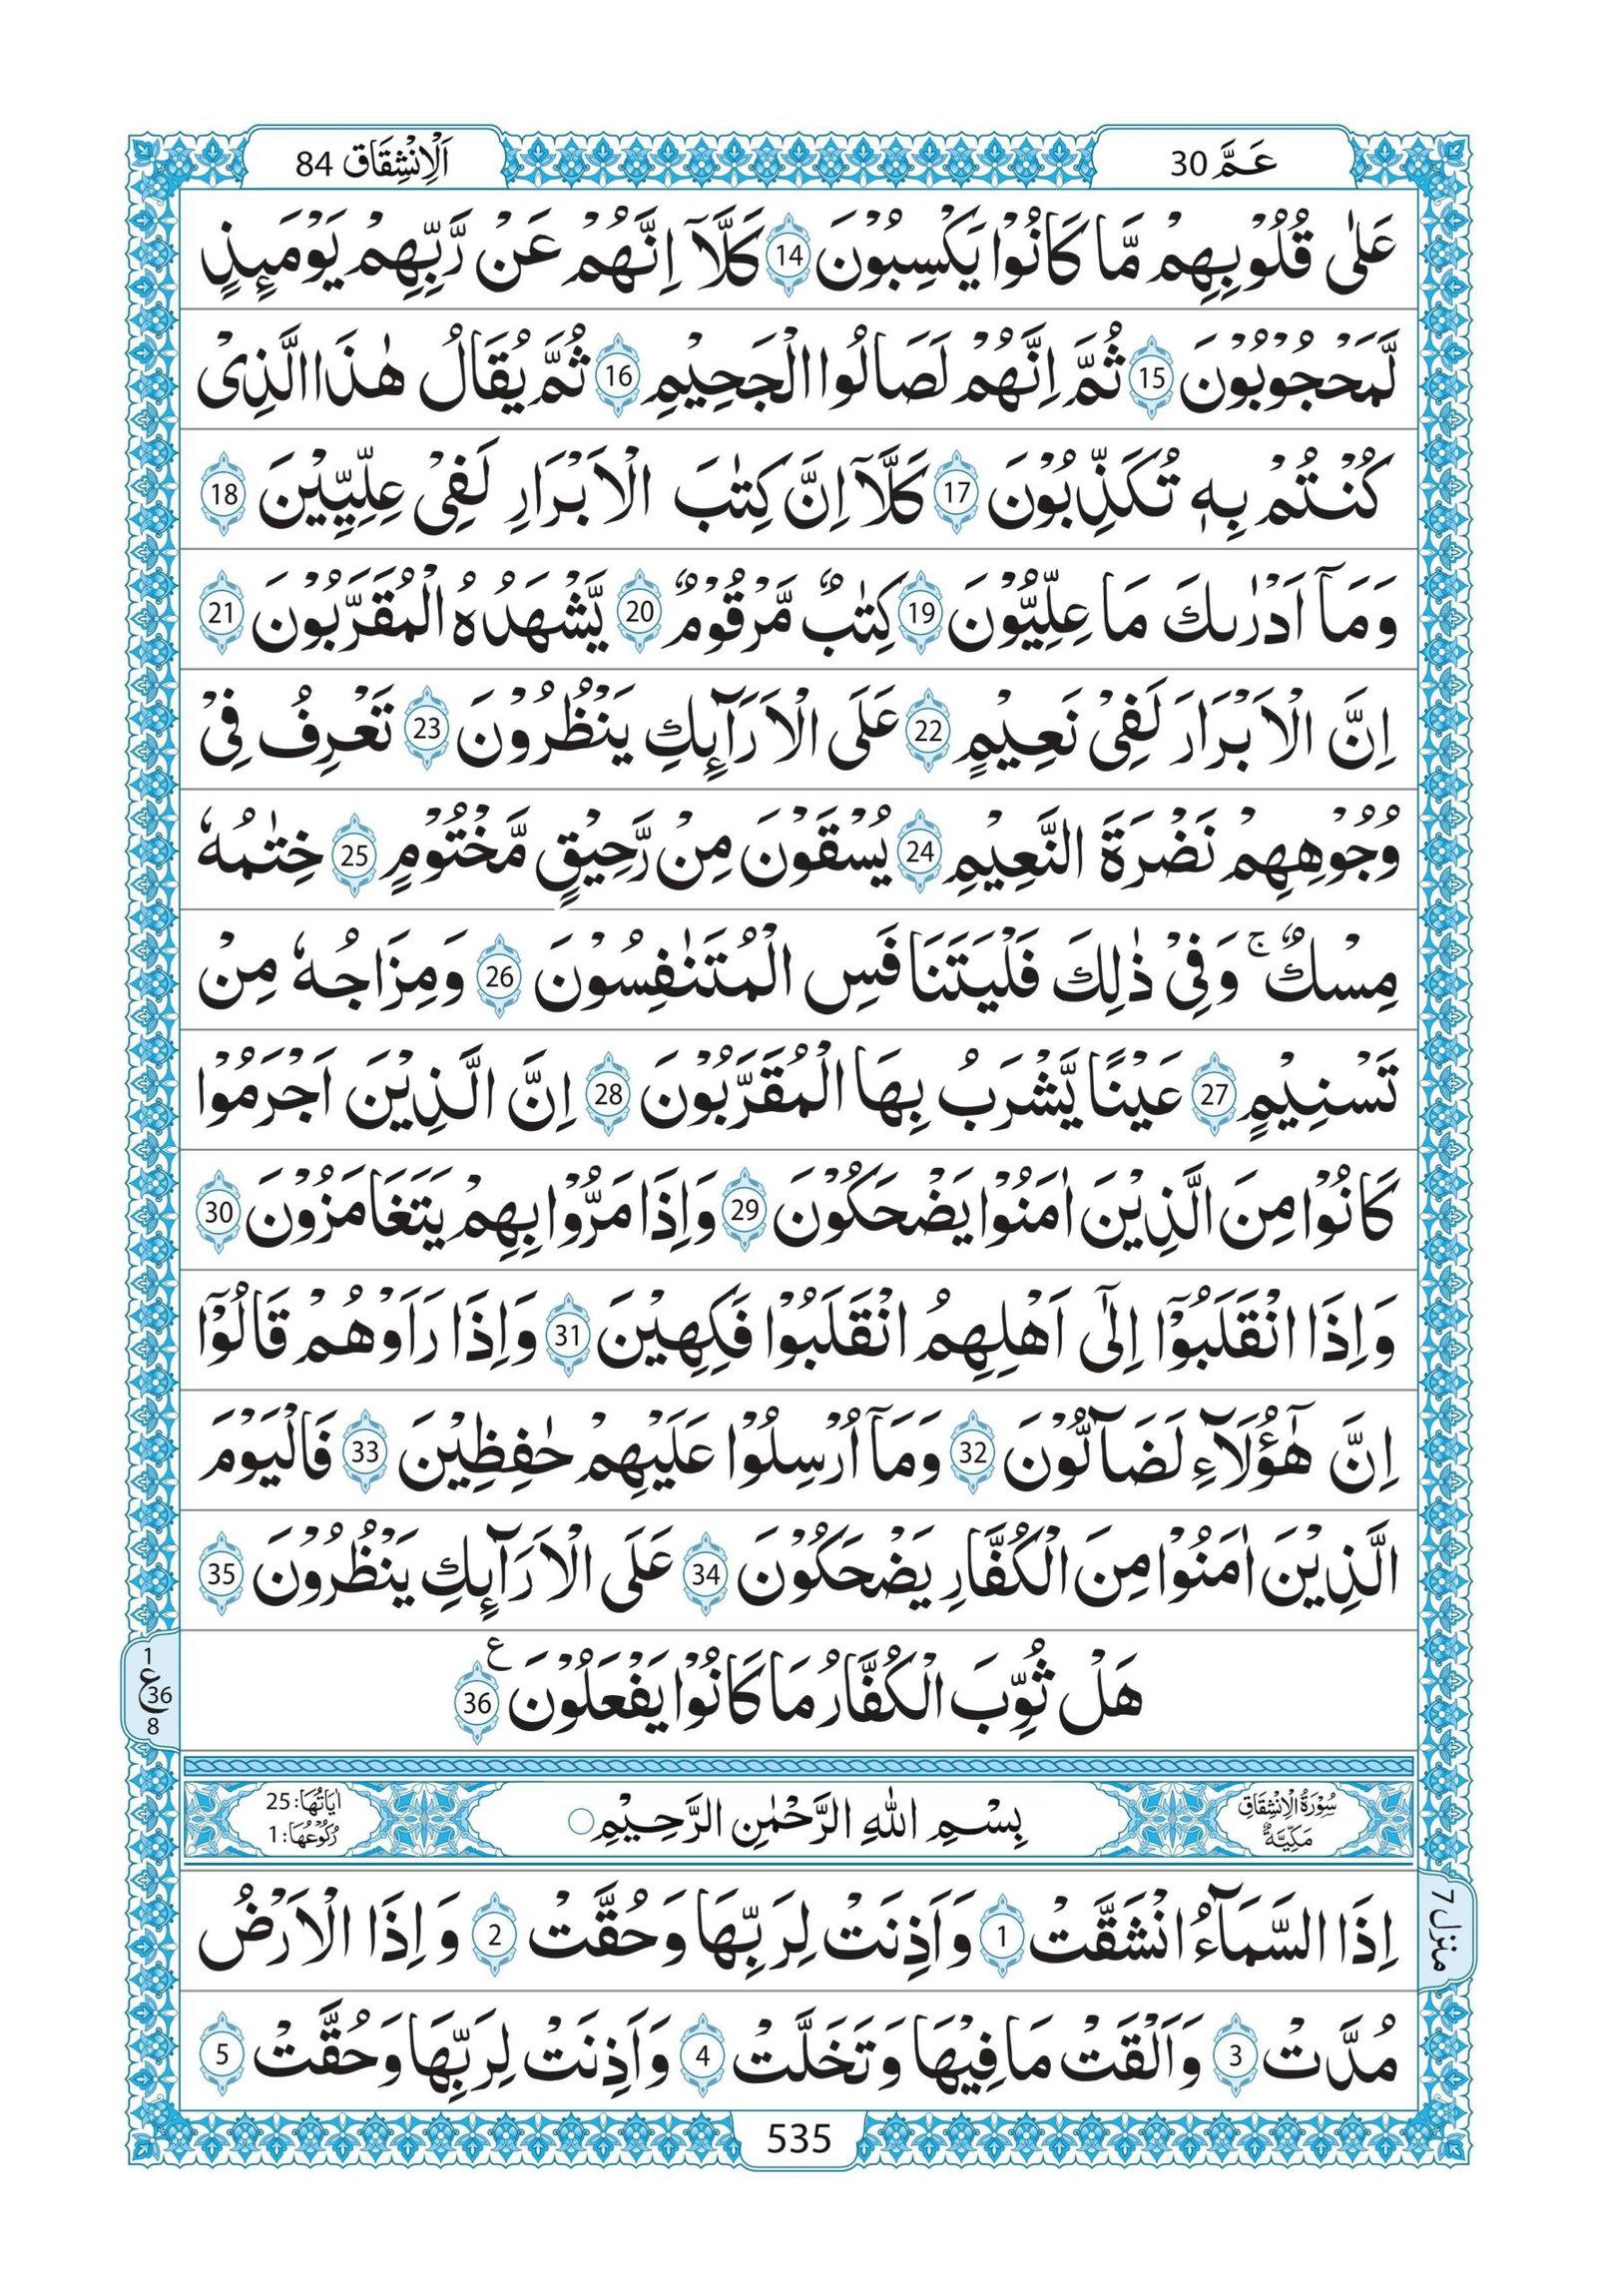 عَمَّ 30
اَلْاِنْشِقَاق 84
عَلٰى قُلُوْبِهِمْ مَّا كَانُوْا يَكْسِبُوْنَ 14 كَلَّاۤ اِنَّهُمْ عَنْ رَّبِّهِمْ يَوْمَىِٕذٍ
لَّمَحْجُوْبُوْنَ 15 ثُمَّ اِنَّهُمْ لَصَالُوا الْجَحِيْمِ 16 ثُمَّ يُقَالُ هٰذَا الَّذِىْ
كُنْتُمْ بِهٖ تُكَذِّبُوْنَ 17 كَلَّاۤ اِنَّ كِتٰبَ الْاَبْرَارِ لَفِىْ عِلِّيِّيْنَ 18
وَمَاۤ اَدْرٰىكَ مَا عِلِّيُّوْنَ 19 كِتٰبٌ مَّرْقُوْمٌ 20 يَّشْهَدُهُ الْمُقَرَّبُوْنَ 21
اِنَّ الْاَبْرَارَ لَفِىْ نَعِيْمٍ 22 عَلَى الْاَرَآىِٕكِ يَنْظُرُوْنَ 23 تَعْرِفُ فِىْ
وُجُوْهِهِمْ نَضْرَةَ النَّعِيْمِ 24 يُسْقَوْنَ مِنْ رَّحِيْقٍ مَّخْتُوْمٍ 25 خِتٰمُهٗ
مِسْكٌ ۚ وَفِىْ ذٰلِكَ فَلْيَتَنَافَسِ الْمُتَنٰفِسُوْنَ 26 وَمِزَاجُهٗ مِنْ
تَسْنِيْمٍ 27 عَيْنًا يَّشْرَبُ بِهَا الْمُقَرَّبُوْنَ 28 اِنَّ الَّذِيْنَ اَجْرَمُوْا
كَانُوْا مِنَ الَّذِيْنَ اٰمَنُوْا يَضْحَكُوْنَ 29 وَاِذَا مَرُّوْا بِهِمْ يَتَغَامَزُوْنَ 30
وَاِذَا انْقَلَبُوْۤا اِلٰٓى اَهْلِهِمُ انْقَلَبُوْا فَكِهِيْنَ 31 وَاِذَا رَاَوْهُمْ قَالُوْۤا
اِنَّ هٰٓؤُلَآءِ لَضَآلُّوْنَ 32 وَمَاۤ اُرْسِلُوْا عَلَيْهِمْ حٰفِظِيْنَ 33 فَالْيَوْمَ
الَّذِيْنَ اٰمَنُوْا مِنَ الْكُفَّارِ يَضْحَكُوْنَ 34 عَلَى الْاَرَآىِٕكِ يَنْظُرُوْنَ 35
هَلْ ثُوِّبَ الْكُفَّارُ مَا كَانُوْا يَفْعَلُوْنَ ع 36
1
ع 36
8
سُوْرَةُ الْاِنْشِقَاقِ
مَكِّيَّةٌ
بِسْمِ اللهِ الرَّحْمٰنِ الرَّحِيْمِ
اٰيَاتُهَا: 25
رُكُوْعُهَا: 1
اِذَا السَّمَآءُ انْشَقَّتْ 1 وَاَذِنَتْ لِرَبِّهَا وَحُقَّتْ 2 وَاِذَا الْاَرْضُ
مُدَّتْ 3 وَاَلْقَتْ مَا فِيْهَا وَتَخَلَّتْ 4 وَاَذِنَتْ لِرَبِّهَا وَحُقَّتْ 5
منزل 7
535